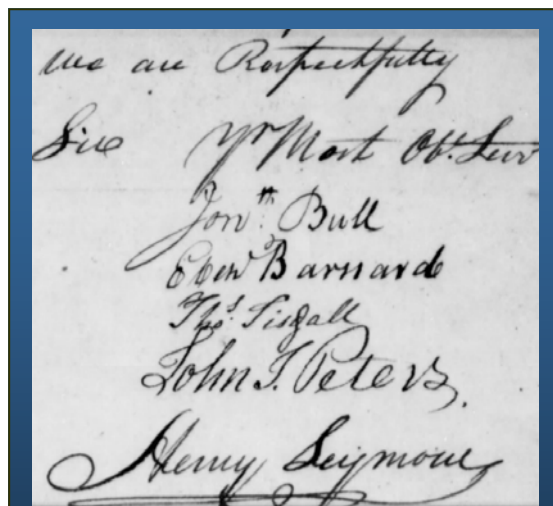 we are Respectfully
Sir Yr Most Obt. Serv
Jonth. Bull
Ebenr Barnard
Thos. Tisdall
John T. Peters
Henry Seymour